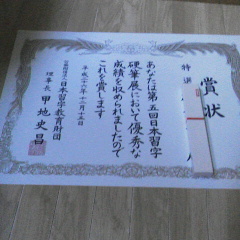 賞状
特選
あなたは第五回日本習字
硬筆展において優秀な
成績を収められましたので
これを賞します
平成二十六年十二月十五日
公益財団法人日本習字教育財団
理事長 甲地史昌